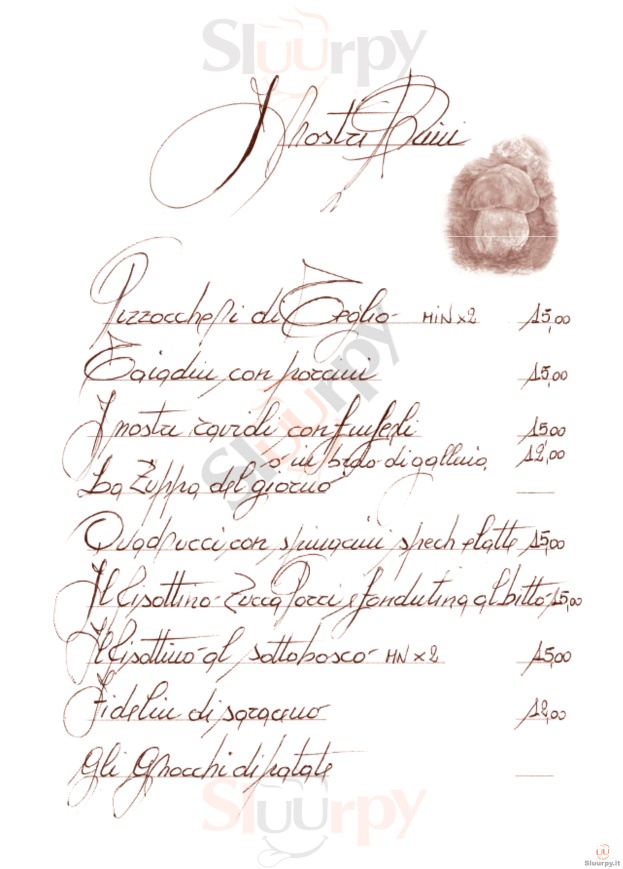 Sluurpy
I nostri Primi
Pizzoccheri di Teglio - MIN x 2 15,00
Taiadin con porcini 15,00
I nostri ravioli con funferli 15,00
o in brodo di gallina 12,00
La Zuppa del giorno
Quadrucci con spinacini, spech e latte 15,00
Il Risottino - Zucca Porri e fondutina al bitto - 15,00
Il Risottino - al sottobosco - MIN x 2 15,00
Fidelin di saraceno 12,00
Gli Gnocchi di patate
Sluurpy
Sluurpy
Sluurpy.it